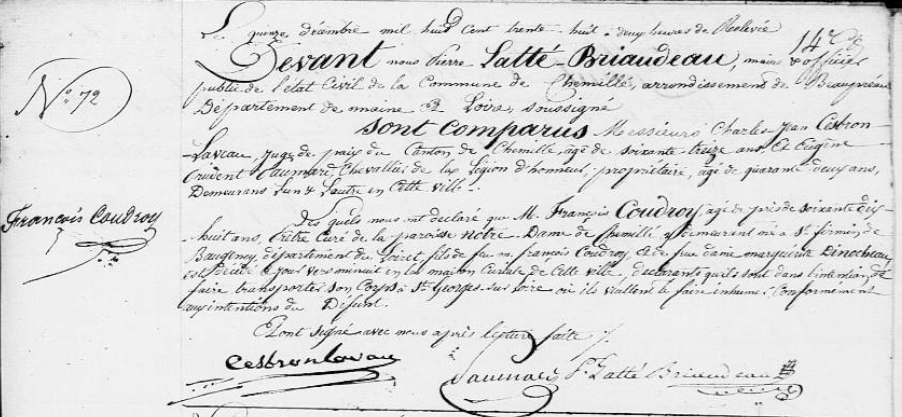 Le quinze décembre mil huit cent trente huit à deux heures de Relevée
Devant nous Pierre Latté-Briaudeau, maire & officier
publie de l'état Civil de la Commune de Chemillé, arrondissement de Beaupréau
Département de maine & Loire, soussigné
N.o 72
sont comparus Messieurs Charles Jean Cesbron-
Laveau, Juge de paix du Canton de Chemillé, âgé de soixante treize ans, Et Eugène
Chevallier de la Légion d'honneur, propriétaire, âgé de quarante deux ans,
Demeurans L'un & Lautre en Cette ville.
Des quels nous ont déclaré que M. François Coudroy, agé de près de soixante dix
François Coudroy
huit ans, Prêtre Curé de la paroisse Notre Dame de Chemillé y demeurant né à St. firmin, de
Baugency, département du Loiret, fils de feu m. françois Coudroy, & de feue dame marguerite Dinocheau,
est décédé ce jour vers minuit en la maison Curiale de Cette ville, déclarants qu'ils sont dans l'intention, de
faire transporter son Corps à St. Georges sur Loire où ils veullent le faire inhumer Conformément
aux intentions du Défunt.
Et ont signé avec nous après lecture faite
Cesbronlavau
P. Latté Briaudeau